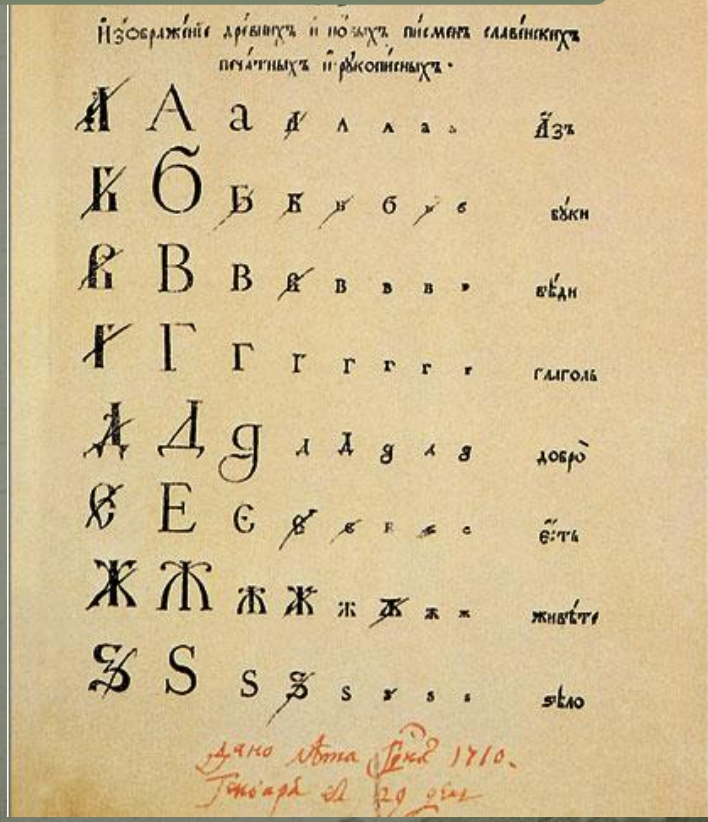 И҆зѡбраже́нїе дре́внихъ и҆ но́выхъ пи́сменъ славе́нскихъ
печа́тныхъ и҆ рꙋкопи́сныхъ.
А А а а а а а а А҆́зъ
Б Б Б Б Б б Б б бꙋ́ки
В В в В в в в в вѣ́ди
Г Г г г г г г г глаго́ль
Д Д д д д д д д добро̀
Є Е є є є е є є є҆́сть
Ж Ж ж Ж ж ж ж ж живѣ́те
Ѕ Ѕ ѕ Ѕ ѕ ѕ ѕ ѕ ѕѣлѡ̀
дано лѣта 1710.
Генваря 29 дня